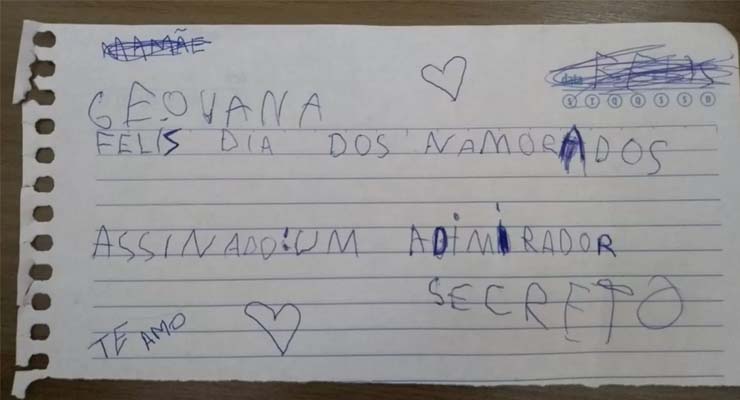 MAMÃE
data
S T Q Q S S D
GEOVANA
FELIS DIA DOS NAMORADOS
ASSINADO:UM ADIMIRADOR
SECRETO
TE AMO